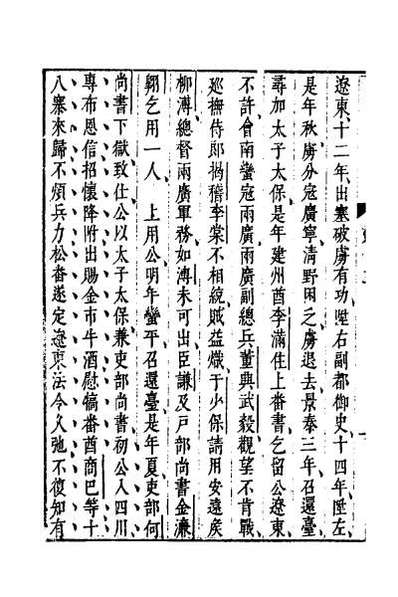 遼東十二年出塞破虜有功陞右副都御史十四年陞左
是年秋虜分寇廣寧清野困之虜退去景泰三年召還臺
尋加太子太保是年建州酋李滿住上番書乞留公遼東
不許會南蠻寇兩廣兩廣副總兵董興武毅觀望不肯戰
廵撫侍郎揭稽李棠不相統賊益熾于少保請用安遠矦
柳溥總督兩廣軍務如溥未可出臣謙及戶部尚書金濂
翱乞用一人　上用公明年蠻平召還臺是年夏吏部何
尚書下獄致仕公以太子太保兼吏部尚書初公入四川
專布恩信招懷降附出賜金市牛酒慰犒番酋商巴等十
八寨來歸不煩兵力松番遂定遼東法令久弛不復知有